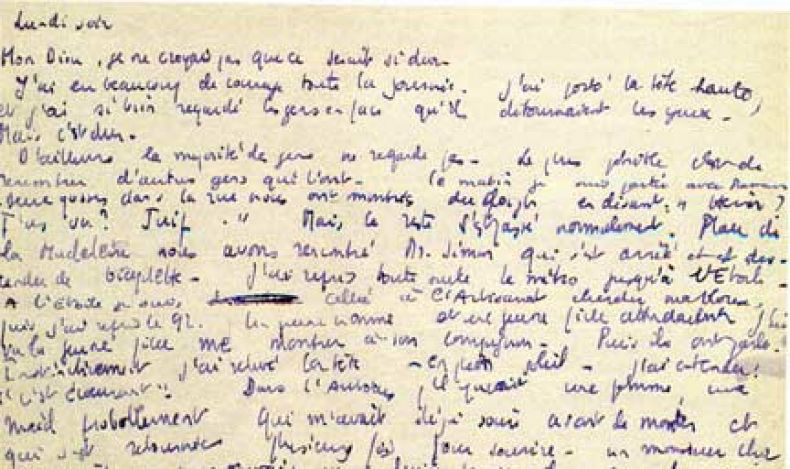 Lundi soir
Mon Dieu, je ne croyais pas que ce serait si dur.
J'ai eu beaucoup de courage toute la journée. J'ai porté la tête haute,
et j'ai si bien regardé les gens en face qu'ils détournaient les yeux.
Mais c'est dur.
D'ailleurs la majorité des gens ne regarde pas. Le plus pénible c'est de
rencontrer d'autres gens qui l'ont. Ce matin je suis partie avec Maman
deux gosses dans la rue nous ont montrés du doigt en disant : "
T'as vu? Juif." Mais le reste s'est passé normalement. Place de
la Madeleine nous avons rencontré M. Simon qui s'est arrêté et est des-
cendu de bicyclette. J'ai repris toute seule le métro jusqu'à l'Etoile.
A l'Etoile je suis allée à l'Artisanat chercher ma blouse,
puis j'ai repris le 92. Un jeune homme et une jeune fille attendaient
vu la jeune fille me montrer à son compagnon. Puis ils ont parlé.
Instinctivement j'ai relevé la tête - en plein soleil - j'ai entendu:
"C'est écœurant". Dans l'autobus, il y avait une femme, une
maid probablement qui m'avait déjà souri avant de monter et
qui s'est retournée plusieurs fois pour sourire - un monsieur chic